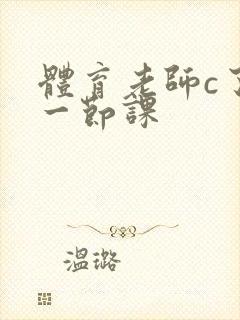 體育老師c了
一節課
溫璐